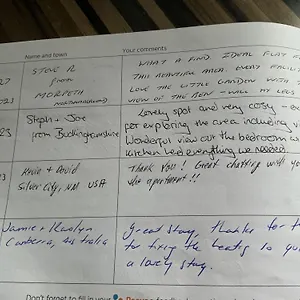 Name and town
Your comments
27
STEVE R
FROM
MORPETH
NORTHUMBERLAND
2023
WHAT A FIND IDEAL FLAT
THIS BEAUTIFUL AREA EVERY
LOVE THE LITTLE GARDEN WITH
VIEW OF THE BEN - WALL MY LEGS
Steph + Joe
from Buckinghamshire
Lovely spot and very cosy -
for exploring the area including
Wonderful view out the bedroom
kitchen had everything we needed.
Kevin + David
Silver City, NM USA
Thank you! Great chatting with yo
apartment!!
Jamie + Kaelyn
Canberra, Australia
Great stay, thanks for
for fixing the heating so
a lovely stay.
Don't forget to fill in your